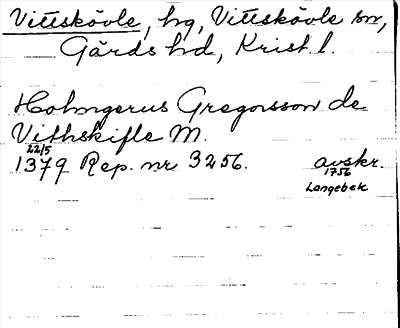 Vittskövle, hg, Vittskövle sn,
Gärds hd, Krist. l.
Holmgerus Gregorsson de
Vithskifle M.
22/5
1379 Rep. nr 3256. avskr.
1756
Langebek